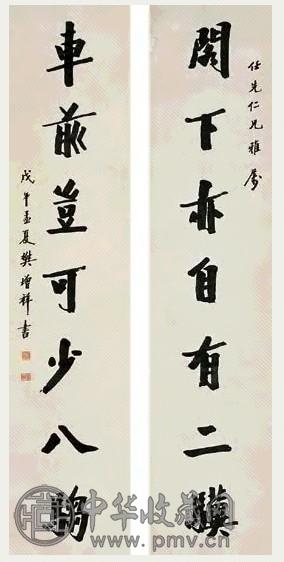 仕先仁兄雅屬
閣下亦自有二驥
車前豈可少八騶
戊午孟夏樊增祥書
中华收藏网
www.pmv.cn